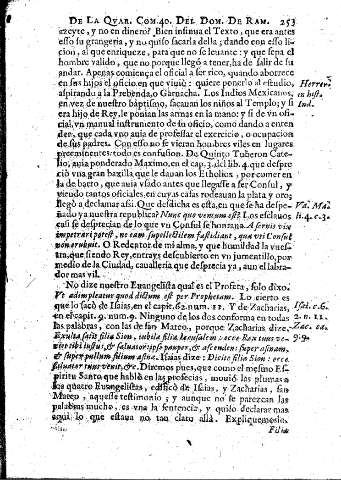 DE LA QUAR. COM. 40. DEL DOM. DE RAM. 253
azeyte, y no en dinero? Bien insinua el Texto, que era antes
esso su grangeria, y no quiso sacarla della; dando con esso li-
cion, al que enriqueze, para que no se leuante: y que sepa el
hombre valido, que no porque llegò a tener, ha de salir de su
andar. Apenas comiença el oficial a ser rico, quando aborrece
en sus hijos el oficio, en que viuiò: quiere ponerlo al estudio,
aspirando a la Prebenda, o Garnacha. Los Indios Mexicanos,
en vez de nuestro baptismo, sacauan los niños al Templo; y si
era hijo de Rey, le ponian las armas en la mano: y si de vn ofi-
cial, vn manual instrumento de su oficio, como dando a enten
der, que cada vno auia de professar el exercicio, o ocupacion
de sus padres. Con esso no se vieran hombres viles en lugares
preeminentes: todo es confusion. De Quinto Tuberon Cate-
lio, auia ponderado Maximo, en el cap. 3. del lib. 4. que despre
ciò vna gran baxilla que le dauan los Etholios, por comer en
la de barro, que auia vsado antes que llegasse a ser Consul, y
viendo tantos oficiales, en cuyas casas rodeauan la plata y oro;
llegò a declamar assi. Que desdicha es esta, en que se ha despe-
ñado ya nuestra republica? Nunc quo ventum est? Los esclauos
casi se desprecian de lo que vn Consul se honraua. A seruis vix
impetrari potest, ne eam supellectilem fastidiant, qua vti Consul
non erubuit. O Redentor de mi alma, y que humildad la vues-
tra, que siendo Rey, entrays descubierto en vn jumentillo, por
medio de la Ciudad, caualleria que desprecia ya, aun el labra-
dor mas vil.
No dize nuestro Euangelista qual es el Profeta, solo dixo:
Vt adimpleatur quod dictum est per Prophetam. Lo cierto es
que lo sacò de Isaias, en el capit. 62. num. 11. Y de Zacharias,
en el capit. 9. num. 9. Ninguno de los dos conforma en todas
las palabras, con las de san Mateo, porque Zacharias dize.
Exulta satis filia Sion, iubila filia Ierusalem: ecce Rex tuus ve-
niet tibi iustus, & saluator ipse pauper, & ascendens super asinam,
& super pullum filium asinæ. Isaias dize: Dicite filiæ Sion: ecce
saluator tuus venit, &c. Diremos pues, que como el mesmo Es-
piritu Santo que hablò en las profecias, mouiò las plumas a
los quatro Euangelistas, edificò de Isaias, y Zacharias, san
Mateo, aqueste testimonio; y aunque no se parezcan las
palabras mucho, es vna la sentencia, y quiso declarar mas
aqui lo que estaua no tan claro allà. Expliquemoslo.
Filiæ
Herrer.
in hist.
Ind.
Va. Ma.
li. 4. c. 3.
Isai. c. 6.
2. n. 11.
Zac. ca.
9. 9.